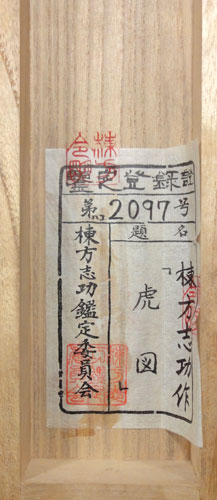 鑑定登録証
第 2097 号
題名
棟方志功作
「虎図」
棟方志功鑑定委員会